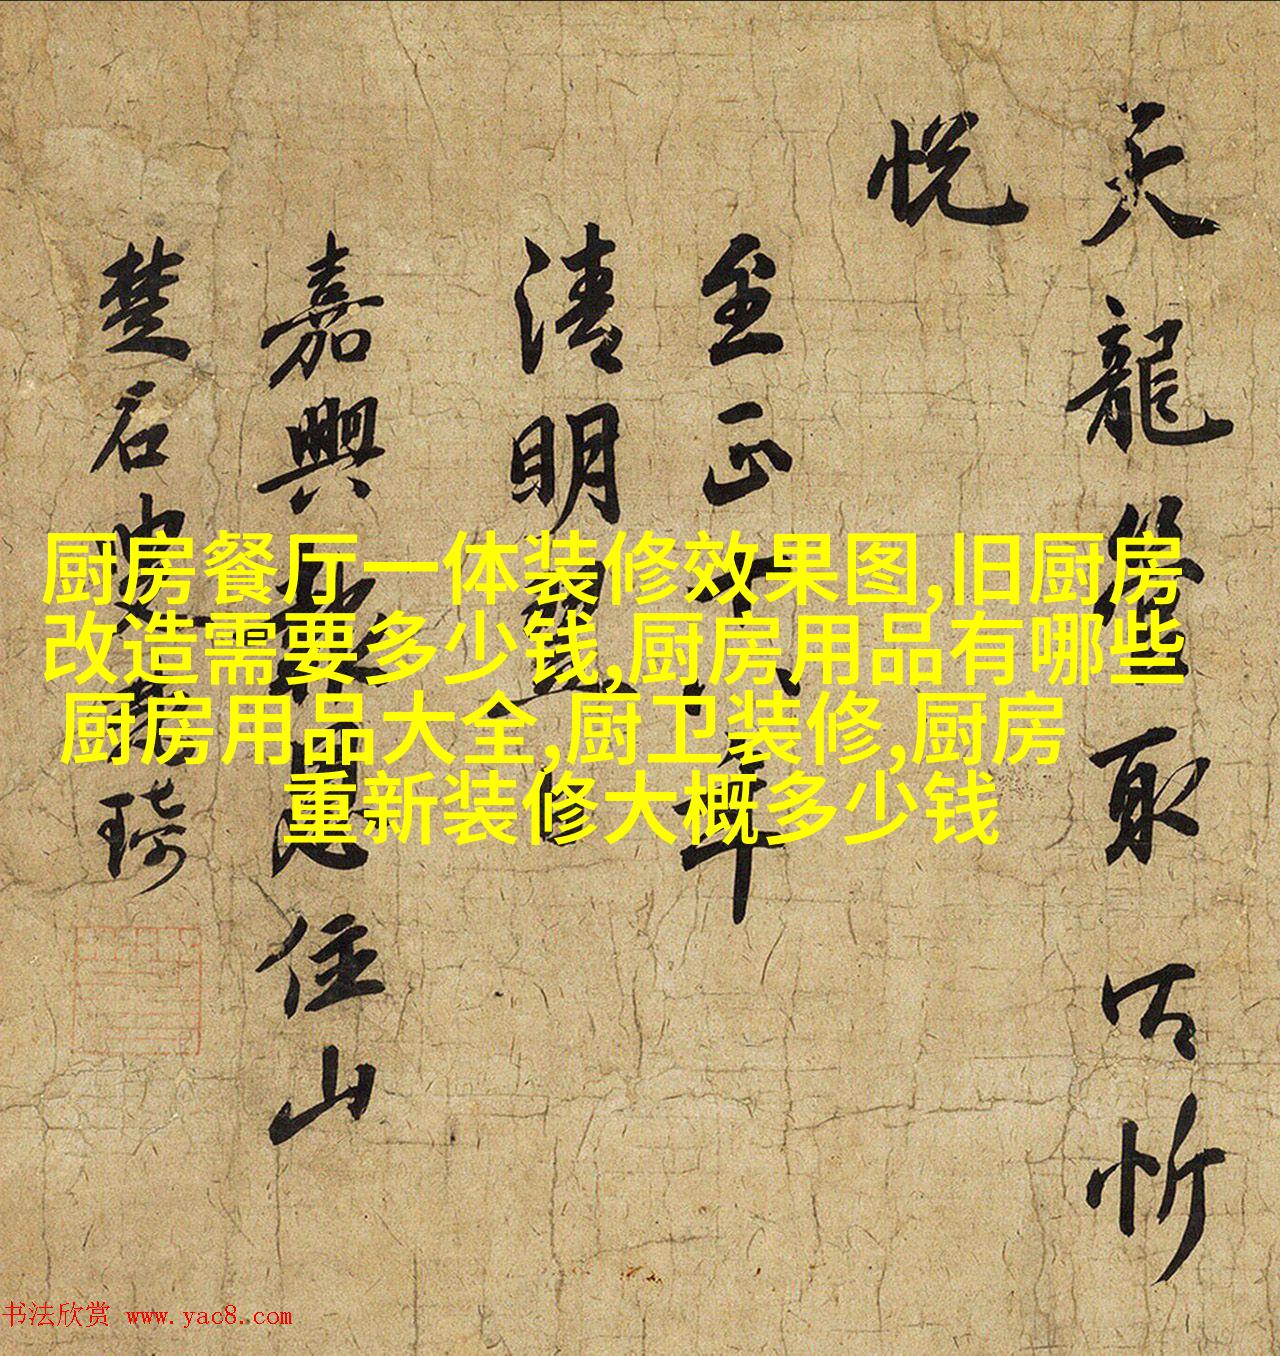 天龍取以忻
悅
至正年
清明
嘉興住山
楚石琦
厨房餐厅一体装修效果图,旧厨房
改造需要多少钱,厨房用品有哪些
厨房用品大全,厨卫装修,厨房
重新装修大概多少钱
书法欣赏 www.yac8.com